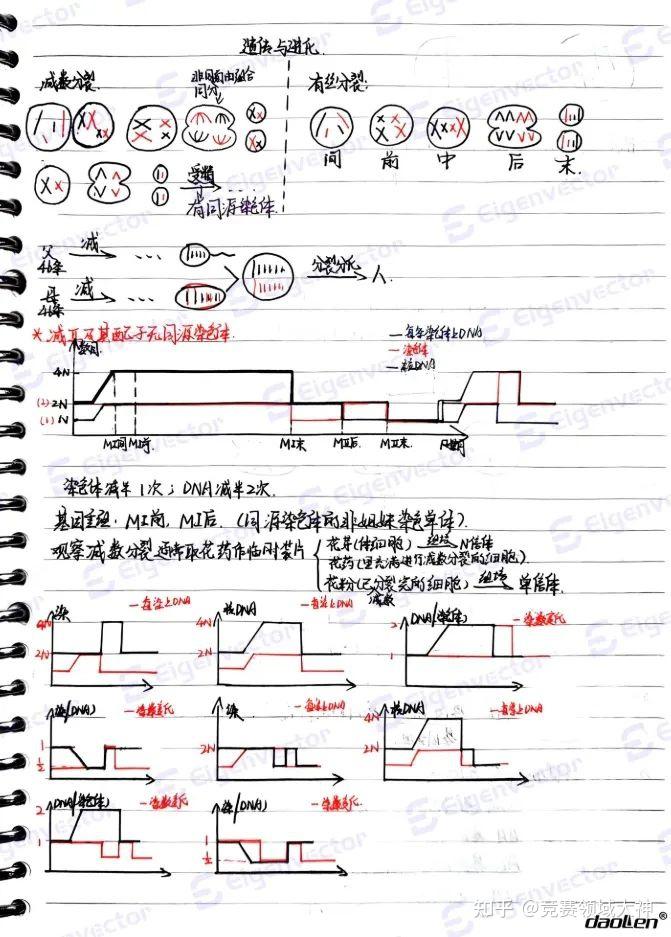 遗传与进化
减数分裂:
非同源自由组合
同分
有丝分裂:
间 前 中 后 末
受精
有同源染色体
父
46条
减
...
母
46条
减
...
分裂分化
人.
* 减Ⅱ及其配子无同源染色体
数目
— 每条染色体上DNA
— 染色体
— 核DNA
4N
(2) 2N
(1) N
MⅠ间 MⅠ前 MⅠ末 MⅡ后 MⅡ末
染色体减半1次; DNA减半2次.
基因重组: MⅠ前, MⅠ后. (同源染色体的非姐妹染色单体).
观察减数分裂选取花药作临时装片
花芽(体细胞) 组培 N倍体
花药(里充满进行减数分裂的细胞).
花粉(已分裂完的细胞) 组培 单倍体.
减数
染 — 每染上DNA
4N
2N
核DNA — 每染上DNA
4N
2N
DNA/染色体 — 染数变化
2
1
染/DNA — 染数变化
1
1/2
染 — 每染上DNA
2N
核DNA — 每染上DNA
4N
2N
DNA/染色体 — 染数变化
2
1
染/DNA — 染数变化
1
1/2
Eigenvector
知乎 @竞赛领域大神
daolen®